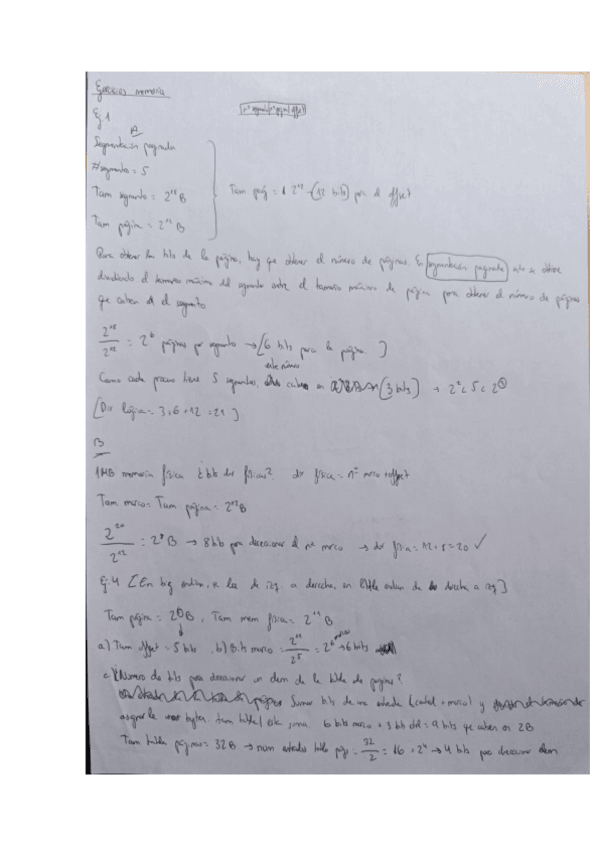 Ejercicios memoria
nº segmento | nº página | offset
Ej 1
A
Segmentación paginada
#segmentos = 5
Tam segmento = 2^18 B
Tam página = 2^12 B
Tam pág = 2^12 → (12 bits) para el offset
Para obtener los bits de la página, hay que obtener el número de páginas. En segmentación paginada esto se obtiene
dividiendo el tamaño máximo del segmento entre el tamaño máximo de página para obtener el número de páginas
que caben en el segmento
2^18 / 2^12 = 2^6 páginas por segmento → [6 bits para la página]
este número
Como cada proceso tiene 5 segmentos, caben en (3 bits) → 2^2 < 5 < 2^3
[Dir lógica = 3+6+12 = 21]
B
1MB memoria física ¿bits dir físicas? dir física = nº marco + offset
Tam marco = Tam página = 2^12 B
2^20 / 2^12 = 2^8 B → 8 bits para direccionar el nº marco → dir física = 12+8 = 20 ✓
Ej. 4 [En big endian, se lee de izq. a derecha, en little endian de derecha a izq]
Tam página = 2^5 B, Tam mem física = 2^11 B
a) Tam offset = 5 bits, b) Bits marco = 2^11 / 2^5 = 2^6 marcos → 6 bits
c) ¿Número de bits para direccionar un elem de la tabla de páginas?
Sumar bits de una entrada (control + marco) y
asignarle bytes. 6 bits marco + 3 bits ctrl = 9 bits que caben en 2B
Tam tabla páginas = 32B → num entradas tabla pág = 32 / 2 = 16 = 2^4 → 4 bits para direccionar elem